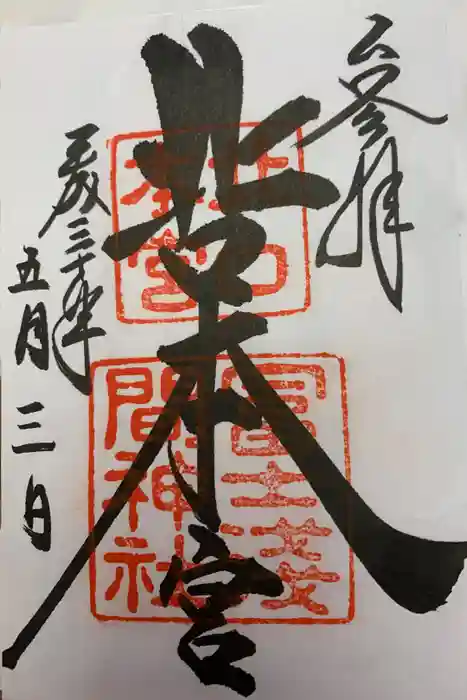 參拝
北口本宮
平成三十年
五月三日
北口
本宮
冨士浅
間神社